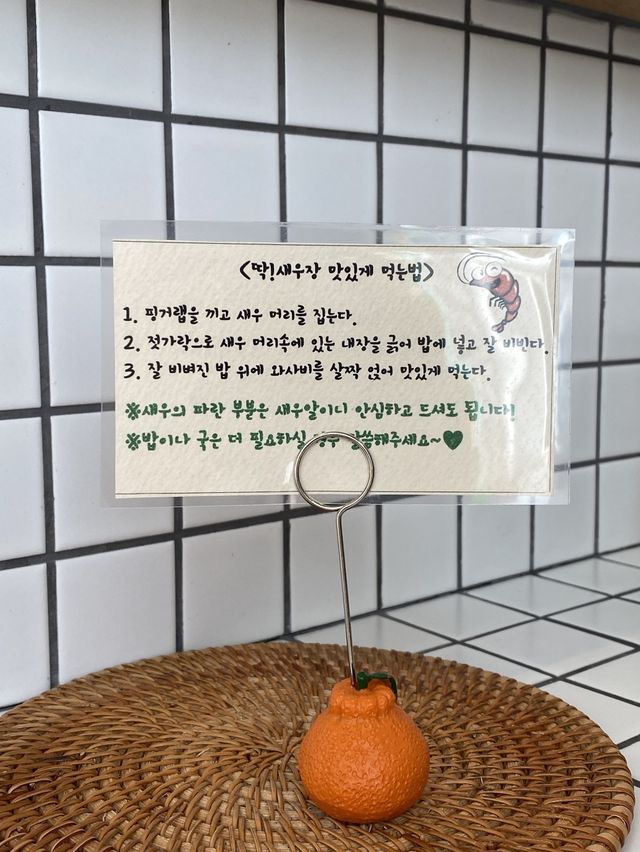 <딱!새우장 맛있게 먹는법>
1. 핑거랩을 끼고 새우 머리를 집는다.
2. 젓가락으로 새우 머리속에 있는 내장을 긁어 밥에 넣고 잘 비빈다.
3. 잘 비벼진 밥 위에 와사비를 살짝 얹어 맛있게 먹는다.
※새우의 파란 부분은 새우알이니 안심하고 드셔도 됩니다!
※밥이나 국은 더 필요하실 경우 말씀해주세요~♥